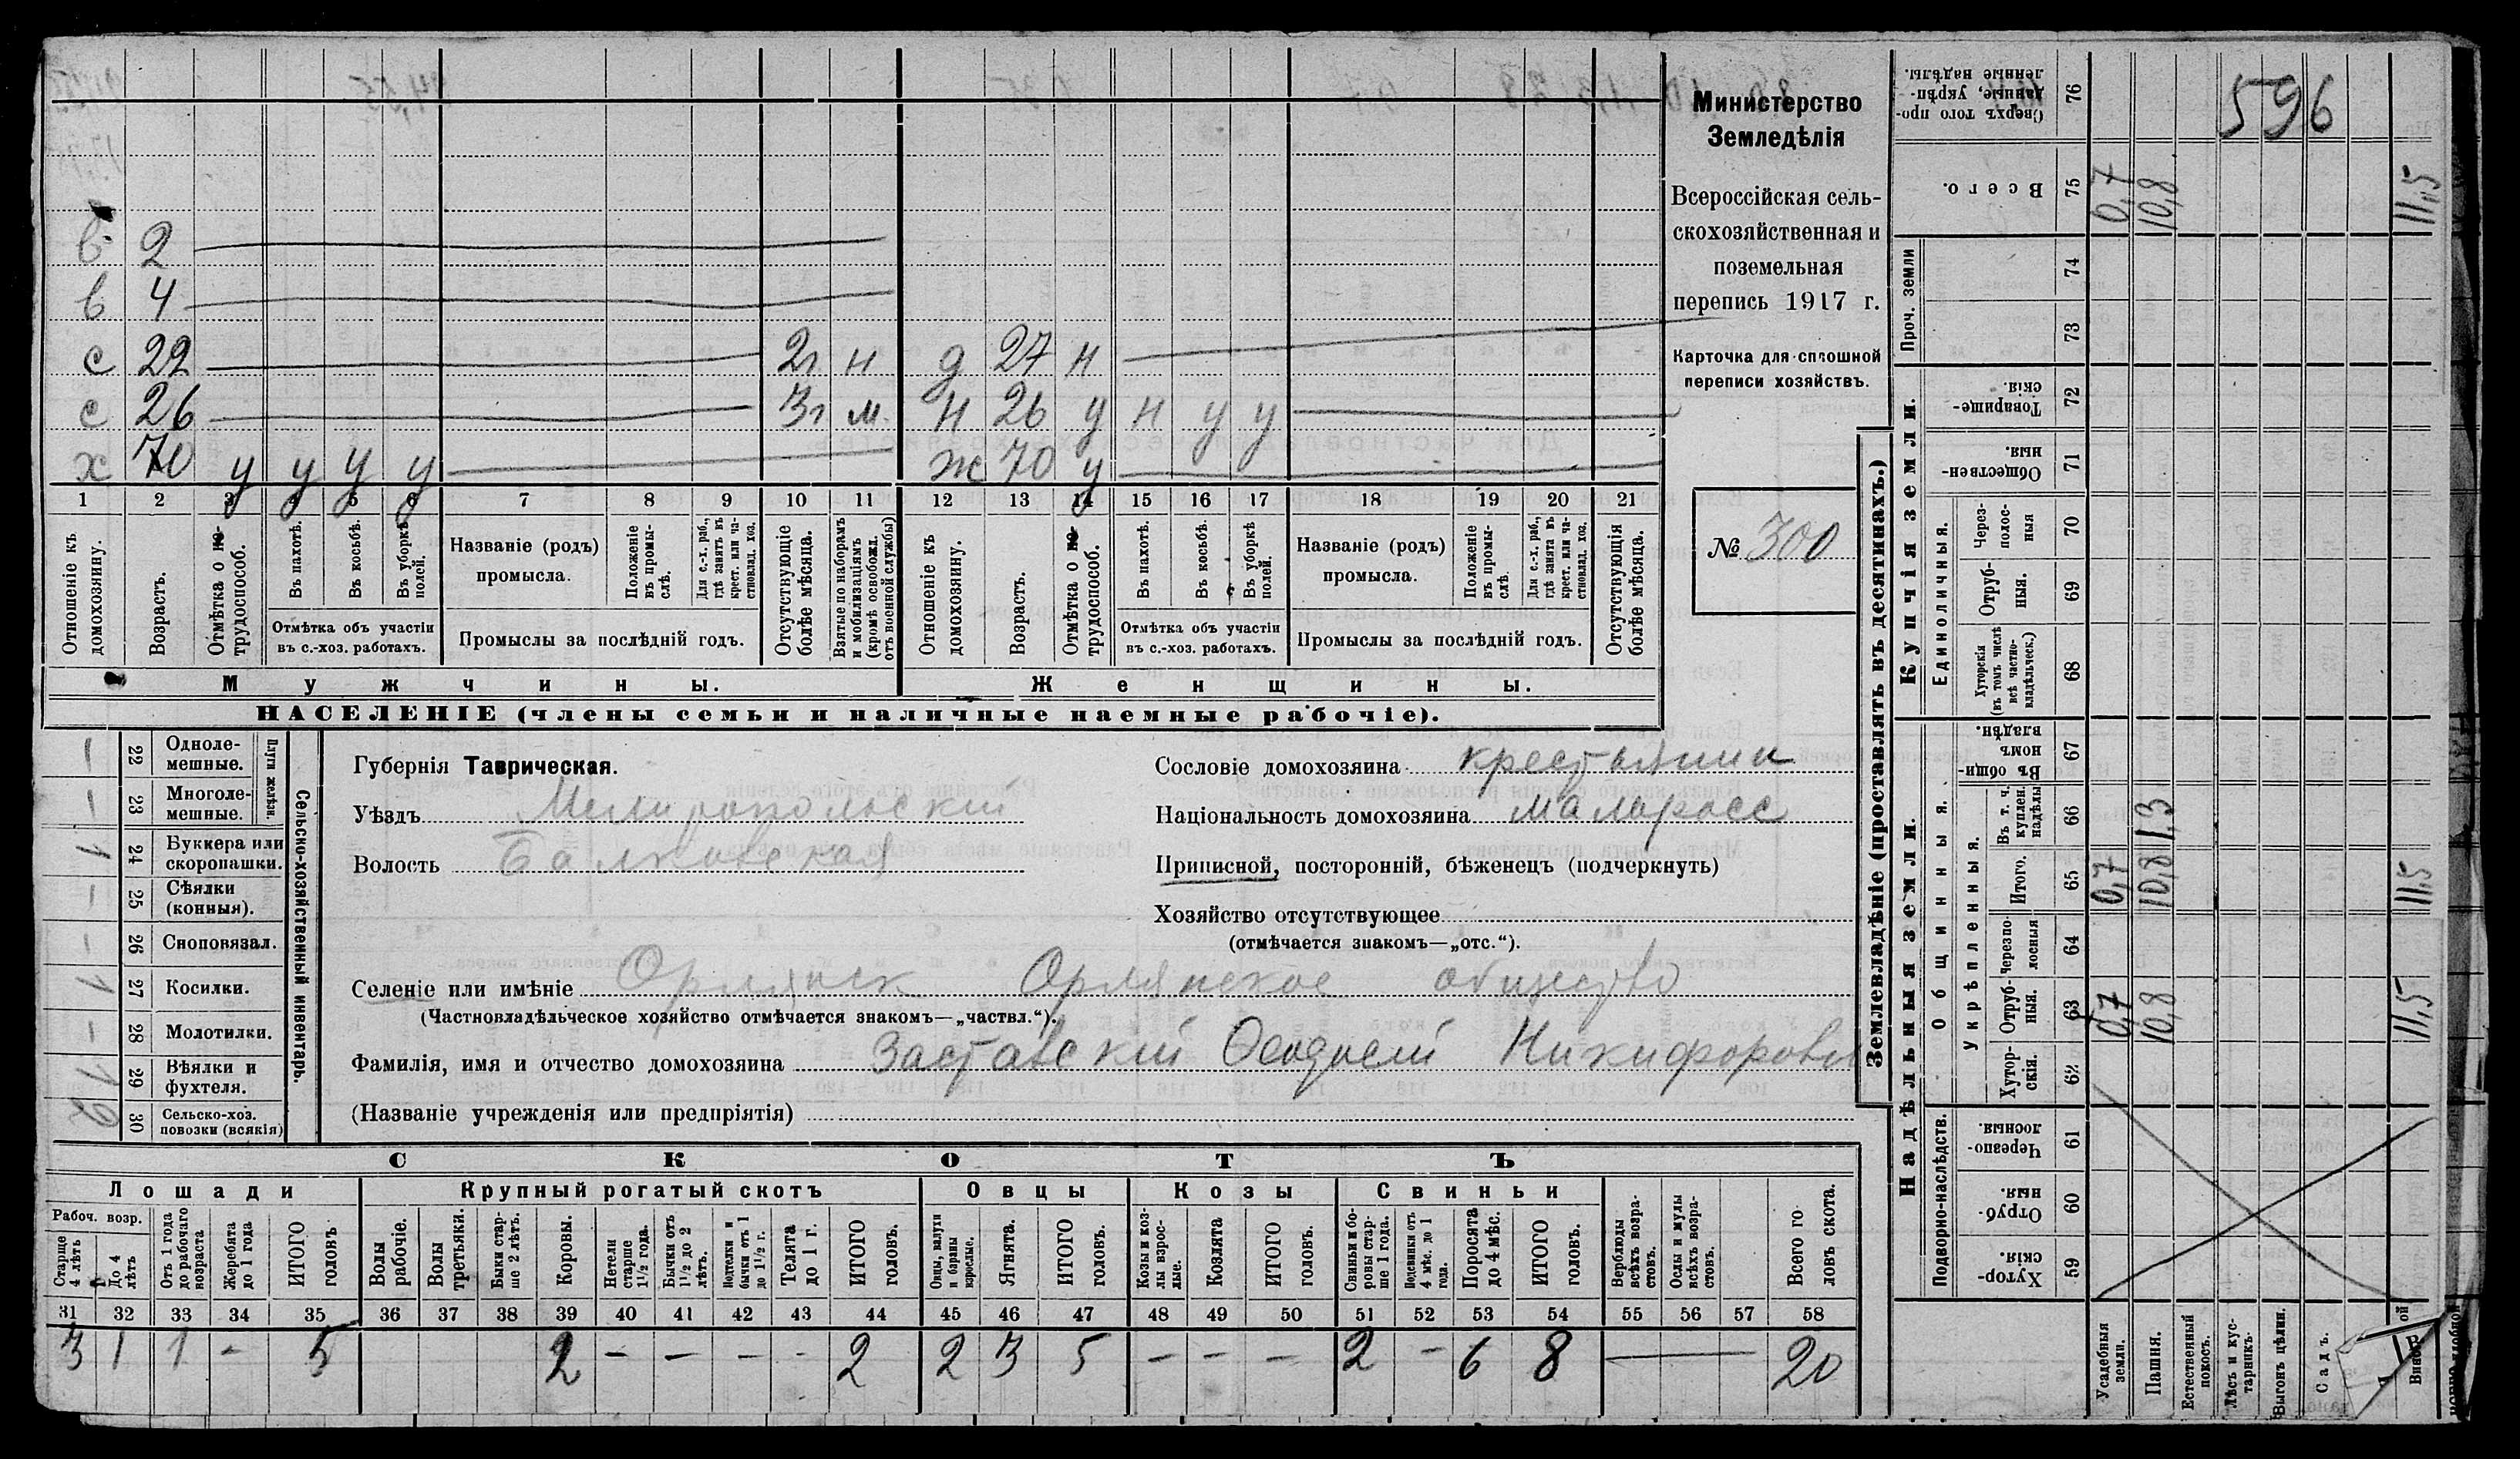 596
Министерство
Земледѣлія
Всероссійская сель-
скохозяйственная и
поземельная
перепись 1917 г.
Карточка для сплошной
переписи хозяйствъ.
№ 300
в 2
в 4
с 22 2г н д 27 н
с 26 3г м. н 26 у н у у
х 70 у у у у ж 70 у
1 2 3 4 5 6 7 8 9 10 11 12 13 14 15 16 17 18 19 20 21
Отношеніе къ домохозяину.
Возрастъ.
Отмѣтка о не-трудоспособ.
Въ пахотѣ.
Въ косьбѣ.
Въ уборкѣ полей.
Отмѣтка объ участіи
въ с.-хоз. работахъ.
Названіе (родъ)
промысла.
Положеніе въ промы-слѣ.
Для с.-х. раб., гдѣ занятъ въ крест. или ча-стновлад. хоз.
Промыслы за послѣдній годъ.
Отсутствующіе болѣе мѣсяца.
Взятые по наборамъ и мобилизаціямъ (кромѣ освобожд. отъ военной службы)
Отношеніе къ домохозяину.
Возрастъ.
Отмѣтка о не-трудоспособ.
Въ пахотѣ.
Въ косьбѣ.
Въ уборкѣ полей.
Отмѣтка объ участіи
въ с.-хоз. работахъ.
Названіе (родъ)
промысла.
Положеніе въ промы-слѣ.
Для с.-х. раб., гдѣ занята въ крест. или ча-стновлад. хоз.
Промыслы за послѣдній годъ.
Отсутствующія болѣе мѣсяца.
Мужчины. Женщины.
НАСЕЛЕНІЕ (члены семьи и наличные наемные рабочіе).
Сельско-хозяйственный инвентарь.
Плуги желѣзн.
– 22 Одноле-мешные.
– 23 Многоле-мешные.
1 24 Буккера или скоропашки.
– 25 Сѣялки (конныя).
– 26 Сноповязал.
1 27 Косилки.
– 28 Молотилки.
1 29 Вѣялки и фухтеля.
2 30 Сельско-хоз. повозки (всякія)
Губернія Таврическая.
Уѣздъ Мелитопольскій
Волость Балковская
Сословіе домохозяина крестьянин
Національность домохозяина малоросс
Приписной, посторонній, бѣженецъ (подчеркнуть)
Хозяйство отсутствующее
(отмѣчается знакомъ—„отс.“).
Селеніе или имѣніе Орлянск Орлянское общество
(Частновладѣльческое хозяйство отмѣчается знакомъ—„частвл.“).
Фамилія, имя и отчество домохозяина Заставскій Никифорович
(Названіе учрежденія или предпріятія)
СКОТЪ
Лошади Крупный рогатый скотъ Овцы Козы Свиньи
Рабоч. возр.
Старше 4 лѣтъ
До 4 лѣтъ
Отъ 1 года до рабочаго возраста
Жеребята до 1 года
ИТОГО головъ
Волы рабочіе.
Волы третьяки.
Быки стар-ше 2 лѣтъ.
Коровы.
Нетели старше 1½ года.
Бычки отъ 1½ до 2 лѣтъ.
Подтелки и бычки отъ 1 до 1½ г.
Телята до 1 г.
ИТОГО головъ.
Овцы, валухи и бараны взрослые.
Ягнята.
ИТОГО головъ.
Козы и коз-лы взрос-лые.
Козлята
ИТОГО головъ.
Свиньи и бо-ровы стар-ше 1 года.
Подсвинки отъ 4 мѣс. до 1 года.
Поросята до 4 мѣс.
ИТОГО головъ.
Верблюды всѣхъ возра-стовъ.
Ослы и мулы всѣхъ возра-стовъ.
Всего го-ловъ скота.
31 32 33 34 35 36 37 38 39 40 41 42 43 44 45 46 47 48 49 50 51 52 53 54 55 56 57 58
3 1 1 - 5 2 – – – - 2 2 3 5 – – – 2 – 6 8 — 20
Землевладѣніе (проставлять въ десятинахъ.)
Купчія земли.
Надѣльныя земли.
Сверхъ того про-данные, укрѣп-ленные надѣлы. 76
Всего. 75 0,7 10,8 11,5
Проч. земли
74
73
Товарище-скія. 72
Обществен-ныя. 71
Единоличныя.
Через-полос-ныя 70
Отруб-ныя. 69
Хуторскія (въ томъ числѣ всѣ частно-владѣльческ.) 68
Общинныя.
Въ общин-номъ владѣн. 67
Укрѣпленныя.
Въ т. ч. куплен. надѣлы 66 1,3
Итого. 65 0,7 10,8 11,5
Черезпо-лосныя 64
Отруб-ныя. 63 0,7 10,8 11,5
Хутор-скія. 62
Подворно-наслѣдств.
Черезпо-лосныя. 61
Отруб-ныя. 60
Хутор-скія. 59
Усадебныя земли.
Пашня.
Естественный покосъ.
Лѣсъ и кус-тарникъ.
Выгонъ цѣлин.
Садъ.